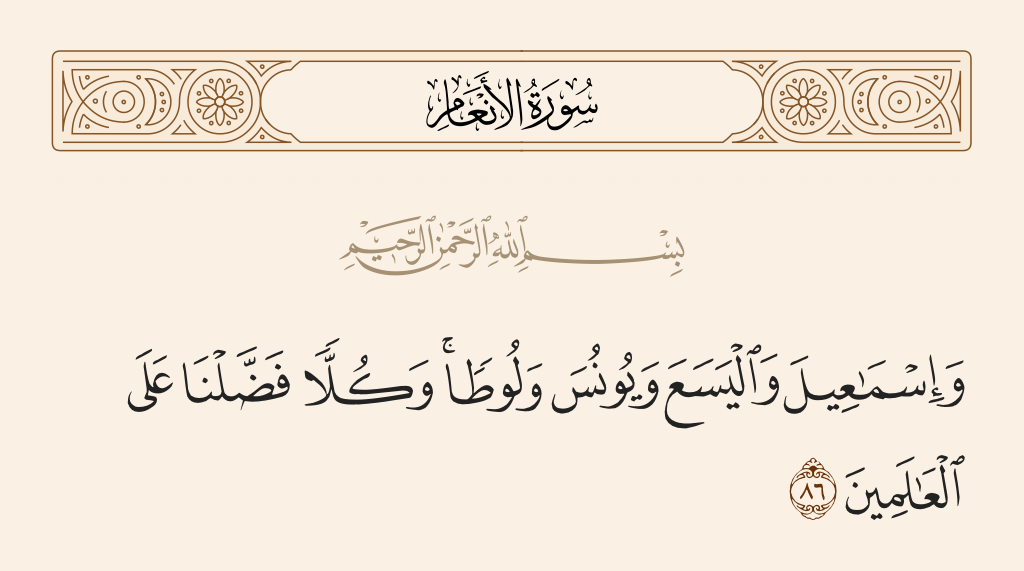 سُورَةُ الأَنْعَامِ
بِسْمِ ٱللَّهِ ٱلرَّحْمَٰنِ ٱلرَّحِيمِ
وَإِسْمَٰعِيلَ وَٱلْيَسَعَ وَيُونُسَ وَلُوطًا ۚ وَكُلًّا فَضَّلْنَا عَلَى
ٱلْعَٰلَمِينَ ٨٦